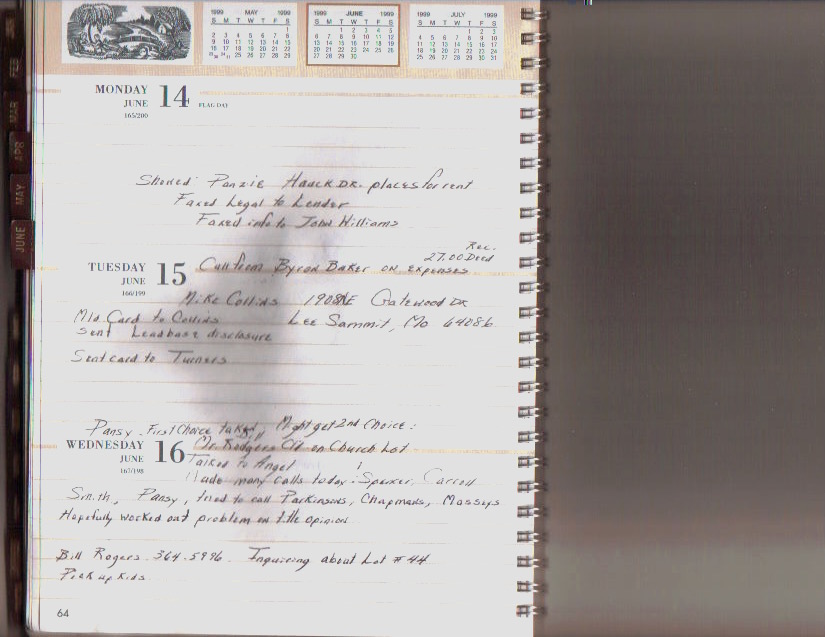 1999 MAY 1999
S M T W T F S
1
2 3 4 5 6 7 8
9 10 11 12 13 14 15
16 17 18 19 20 21 22
23 24 25 26 27 28 29
30 31
1999 JUNE 1999
S M T W T F S
1 2 3 4 5
6 7 8 9 10 11 12
13 14 15 16 17 18 19
20 21 22 23 24 25 26
27 28 29 30
1999 JULY 1999
S M T W T F S
1 2 3
4 5 6 7 8 9 10
11 12 13 14 15 16 17
18 19 20 21 22 23 24
25 26 27 28 29 30 31
FEB
MAR
APR
MAY
JUNE
MONDAY 14
JUNE
FLAG DAY
165/200
Showed Panzie Hauck DR. places for rent
Faxed Legal to Lender
Faxed info to John Williams
Rec.
27.00 Deed
TUESDAY 15
JUNE
166/199
Call from Byron Baker on expenses
Mike Collins 1908 NE Gatewood DR
Lee Summit, Mo 64086
Mld Card to Collins
Sent Leadbase disclosure
Sent card to Turners
Pansy - First Choice taken, Might get 2nd Choice:
WEDNESDAY 16
JUNE
167/198
Bill
Mr. Rodgers on Church Lot
Talked to Angel
Made many calls today: Spencer, Carroll
Smith, Pansy, tried to call Parkinsons, Chapmans, Masseys
Hopefully worked out problem on title opinion
Bill Rogers - 364-5996 - Inquiring about Lot #44
Pick up kids
64